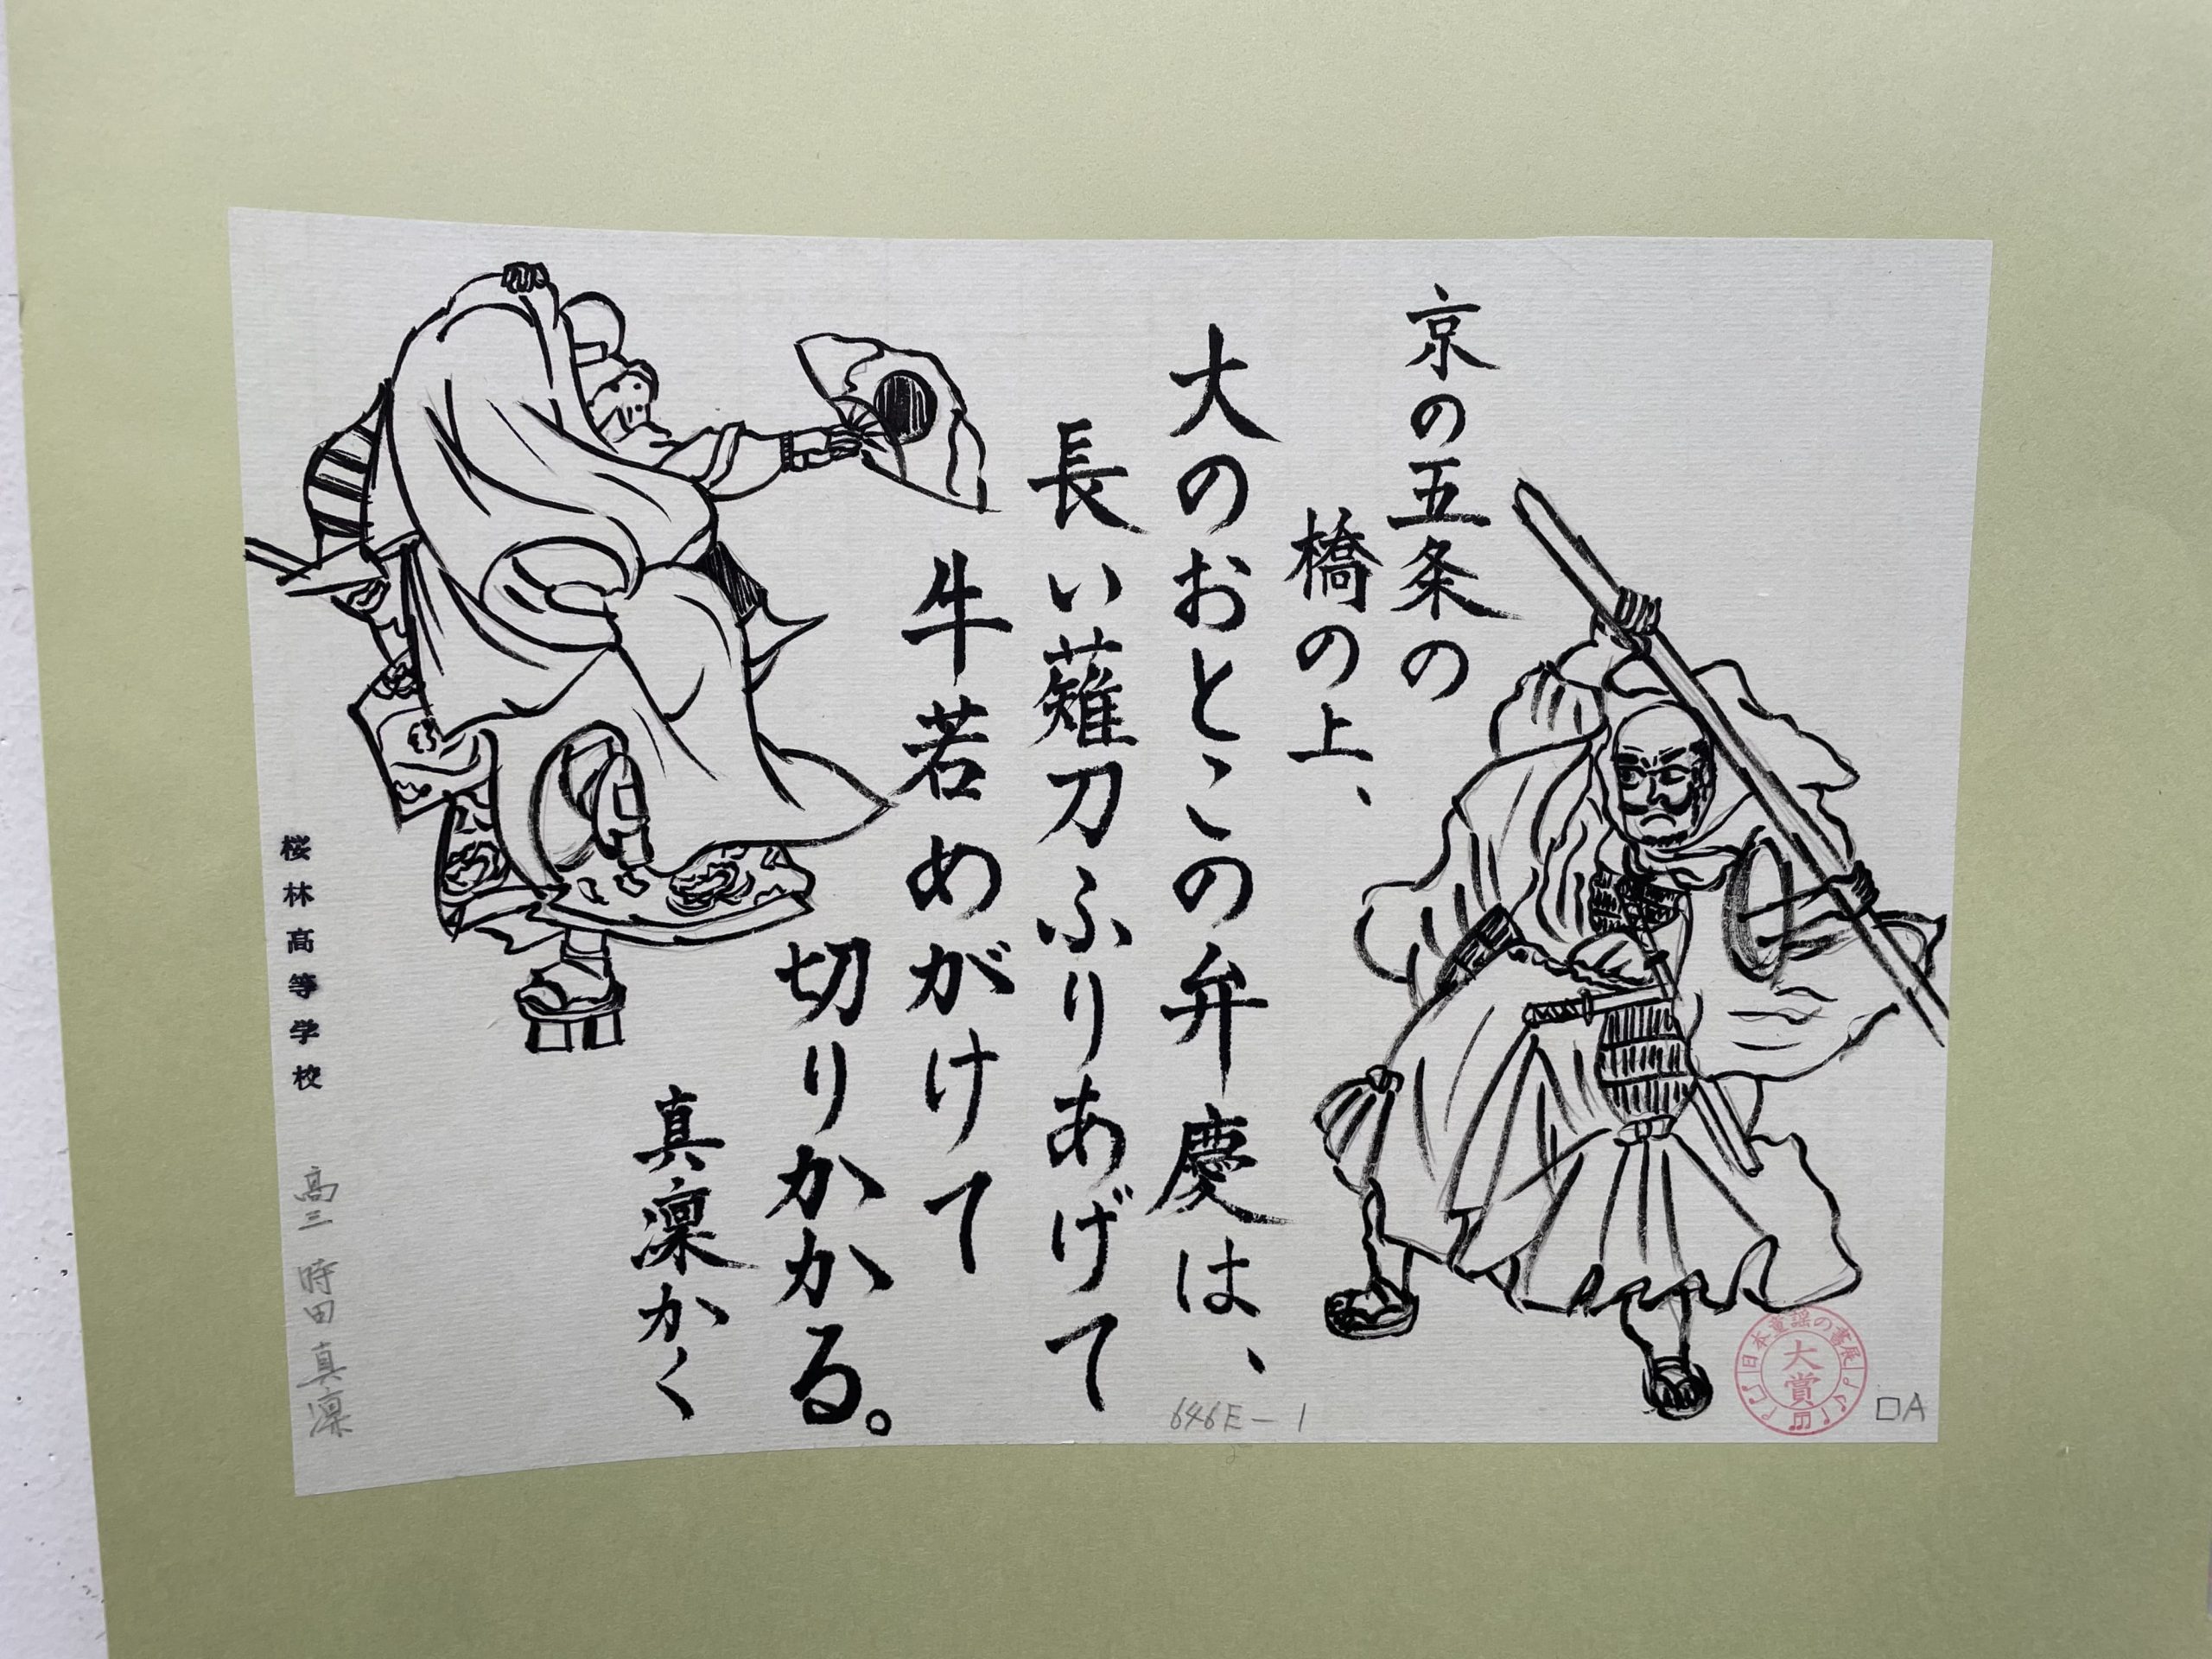 京の五条の
橋の上、
大のおとこの弁慶は、
長い薙刀ふりあげて
牛若めがけて
切りかかる。
真凜かく
桜林高等学校
高三 時田真凜
646E-1
日本童謡の書展
大賞
□A